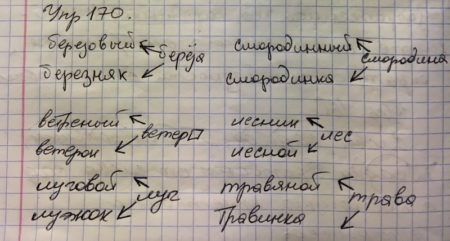 Упр 170.
берёзовый берёза
березняк
смородинный смородина
смородинка
ветреный ветер
ветерок
лесник лес
лесной
луговой луг
лужок
травяной трава
Травинка